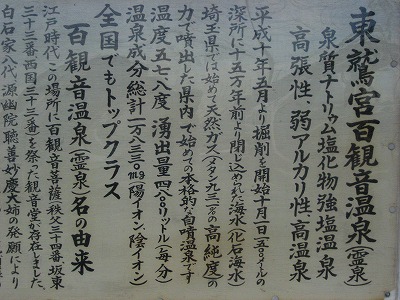 東鷲宮百観音温泉(霊泉)
泉質ナトリウム塩化物強塩温泉
高張性、弱アルカリ性、高温泉
平成十年五月より掘削を開始十月一日、一五〇〇メートルの
深所に十五万年前より閉じ込められた海水(化石海水)
埼玉県では始めて天然ガス(メタン九三%の高純度の
力で噴出した県内で始めての本格的な自噴温泉です
温度五七、八度 湧出量四〇〇リットル(毎分)
温泉成分総計一万八三〇mg(陽イオン、陰イオン)
全国でもトップクラス
百観音温泉(霊泉)名の由来
江戸時代この場所に百観音菩薩秩父三十四番坂東
三十三番西国三十三番を祭った観音堂が存在しました
白石家八代源幽院聴善妙慶大姉の発願により